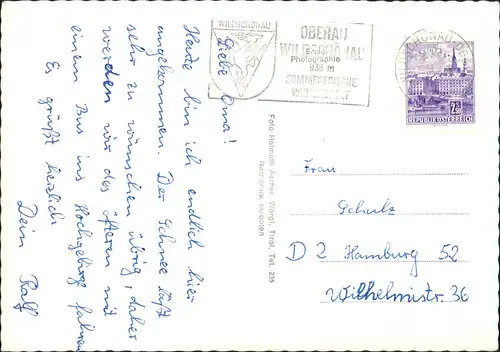 Liebe Oma!
Heute bin ich endlich hier
angekommen. Der Schnee läßt
sehr zu wünschen übrig, daher
werden wir des öfteren mit
einem Bus ins Hochgebirge fahren
Es grüßt herzlich
Dein Ralf
WILDSCHÖNAU
OBERAU
WILDSCHÖNAU
Photographie
936 m
SOMMERFRISCHE
WILDSCHÖNAU
2S
REPUBLIK ÖSTERREICH
Foto Helmuth Ascher, Wörgl, Tirol, Tel. 235
Nachdruck verboten
Frau
Schulz
D 2 Hamburg 52
Wilhelmistr. 36